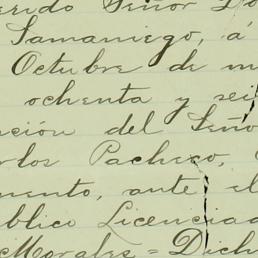 erido Señor Do
Samaniego, á
Octubre de m
ochenta y sei
ción del Seño
rlos Pacheco,
mento, ante el
blico Licenciad
Morales = Dich